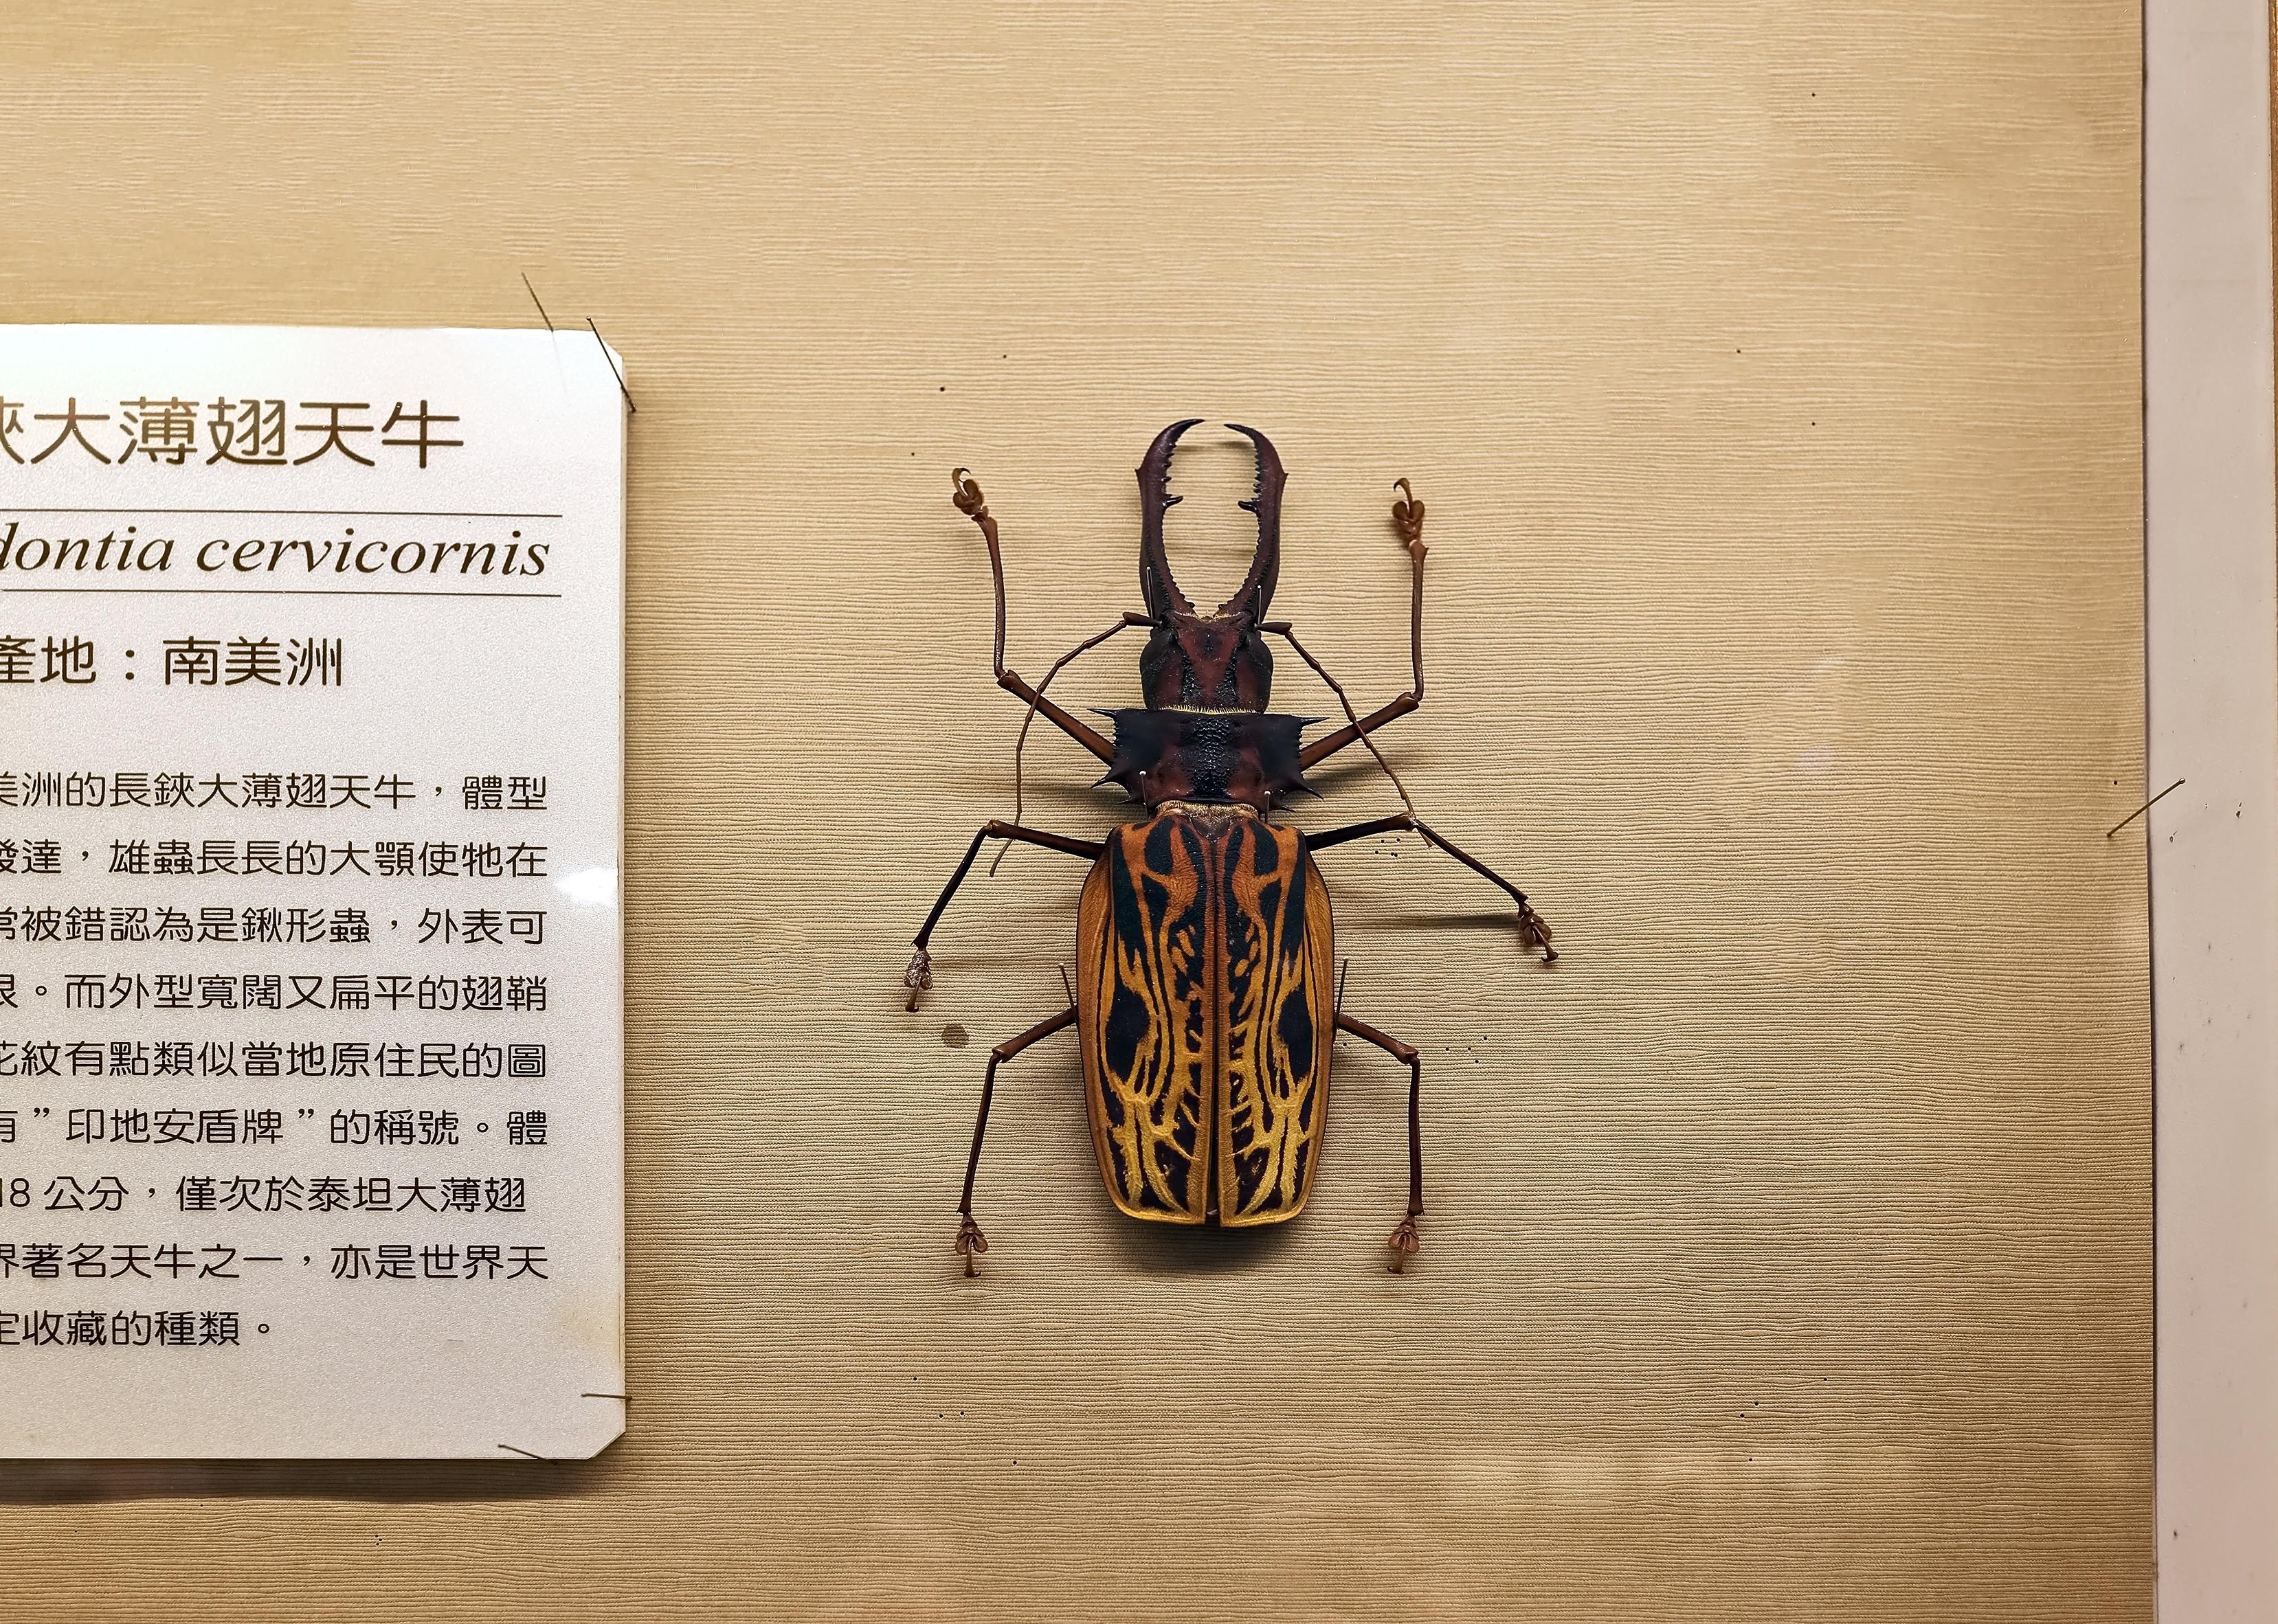 鋏大薄翅天牛
dontia cervicornis
產地：南美洲
美洲的長鋏大薄翅天牛，體型
發達，雄蟲長長的大顎使牠在
常被錯認為是鍬形蟲，外表可
。而外型寬闊又扁平的翅鞘
花紋有點類似當地原住民的圖
有”印地安盾牌”的稱號。體
18 公分，僅次於泰坦大薄翅
界著名天牛之一，亦是世界天
定收藏的種類。